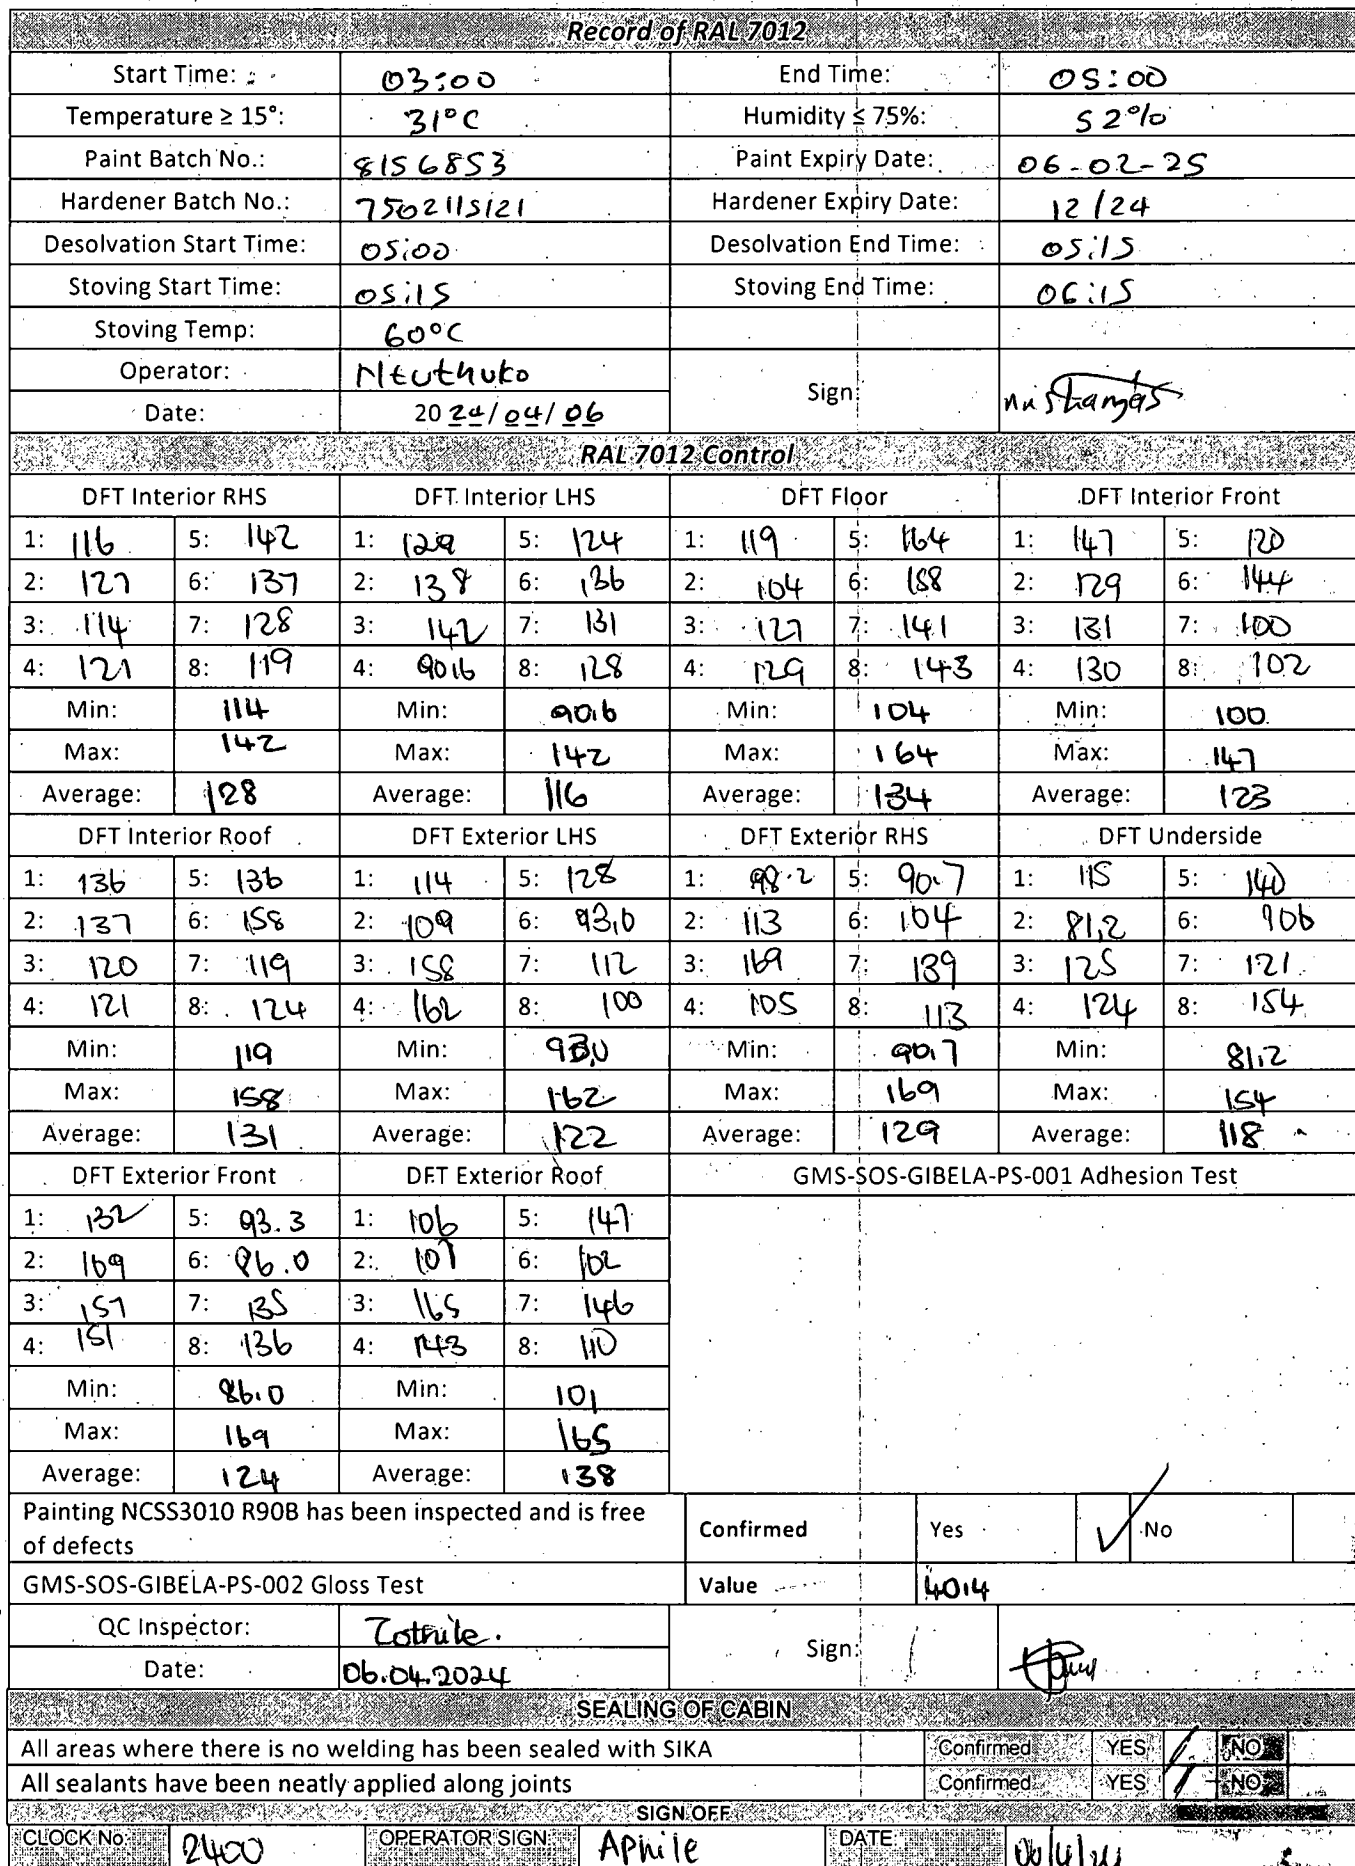 Record of RAL 7012
Start Time: 03:00 End Time: 05:00
Temperature ≥ 15°: 31°C Humidity ≤ 75%: 52%
Paint Batch No.: 8156853 Paint Expiry Date: 06-02-25
Hardener Batch No.: 7502115121 Hardener Expiry Date: 12/24
Desolvation Start Time: 05:00 Desolvation End Time: 05:15
Stoving Start Time: 05:15 Stoving End Time: 06:15
Stoving Temp: 60°C
Operator: Ntuthuko Sign:
Date: 2024/04/06
RAL 7012 Control
DFT Interior RHS DFT Interior LHS DFT Floor DFT Interior Front
1: 116 5: 142 1: 129 5: 124 1: 119 5: 164 1: 147 5: 120
2: 127 6: 137 2: 138 6: 136 2: 104 6: 158 2: 129 6: 144
3: 114 7: 128 3: 142 7: 131 3: 127 7: 141 3: 131 7: 100
4: 121 8: 119 4: 90.6 8: 128 4: 129 8: 143 4: 130 8: 102
Min: 114 Min: 90.6 Min: 104 Min: 100
Max: 142 Max: 142 Max: 164 Max: 147
Average: 128 Average: 116 Average: 134 Average: 123
DFT Interior Roof DFT Exterior LHS DFT Exterior RHS DFT Underside
1: 136 5: 136 1: 114 5: 128 1: 98.2 5: 90.7 1: 115 5: 140
2: 137 6: 158 2: 109 6: 93.0 2: 113 6: 104 2: 81.2 6: 106
3: 120 7: 119 3: 158 7: 112 3: 169 7: 139 3: 125 7: 121
4: 121 8: 124 4: 162 8: 100 4: 105 8: 113 4: 124 8: 154
Min: 119 Min: 93.0 Min: 90.7 Min: 81.2
Max: 158 Max: 162 Max: 169 Max: 154
Average: 131 Average: 122 Average: 129 Average: 118
DFT Exterior Front DFT Exterior Roof GMS-SOS-GIBELA-PS-001 Adhesion Test
1: 132 5: 93.3 1: 106 5: 147
2: 169 6: 86.0 2: 101 6: 102
3: 157 7: 135 3: 165 7: 146
4: 151 8: 136 4: 143 8: 110
Min: 86.0 Min: 101
Max: 169 Max: 165
Average: 124 Average: 138
Painting NCSS3010 R90B has been inspected and is free
of defects Confirmed Yes ✓ No
GMS-SOS-GIBELA-PS-002 Gloss Test Value 40.4
QC Inspector: Sign:
Date: 06.04.2024
SEALING OF CABIN
All areas where there is no welding has been sealed with SIKA Confirmed YES NO
All sealants have been neatly applied along joints Confirmed YES NO
SIGN OFF
CLOCK No: 2400 OPERATOR SIGN: Aphile DATE: